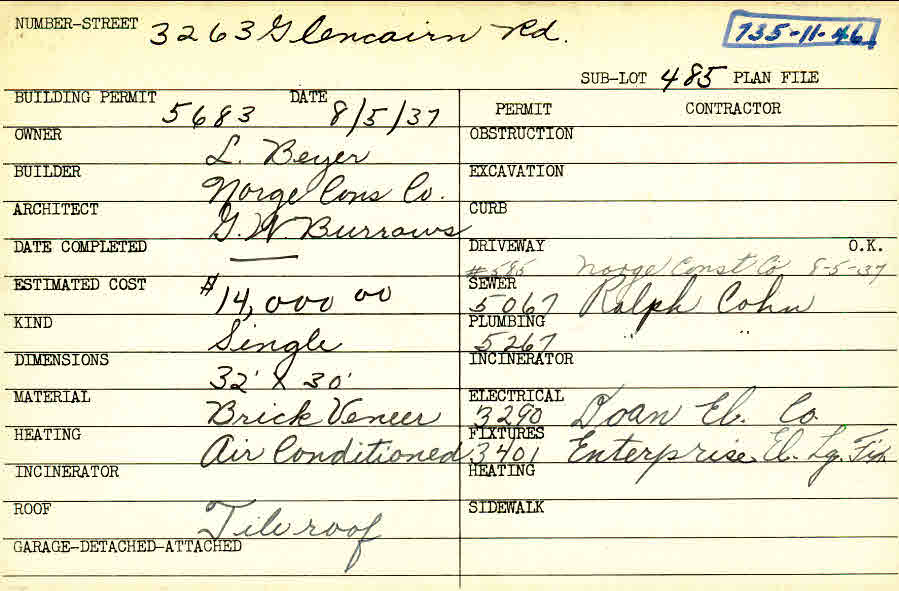 NUMBER-STREET 3263 Glencairn Rd.
735-11-46
SUB-LOT 485 PLAN FILE
BUILDING PERMIT 5683 DATE 8/5/37
PERMIT CONTRACTOR
OWNER L. Beyer
OBSTRUCTION
BUILDER Norge Cons Co.
EXCAVATION
ARCHITECT G.W. Burrows
CURB
DATE COMPLETED —
DRIVEWAY O.K.
#585 Norge Const Co 8-5-37
ESTIMATED COST $14,000 00
SEWER 5067 Ralph Cohn
KIND Single
PLUMBING 5267 " "
DIMENSIONS 32' X 30'
INCINERATOR
MATERIAL Brick Veneer
ELECTRICAL 3290 Doan El. Co.
HEATING Air Conditioned
FIXTURES 3401 Enterprise El. Lg. Fix
INCINERATOR
HEATING
ROOF Tile roof
SIDEWALK
GARAGE-DETACHED-ATTACHED